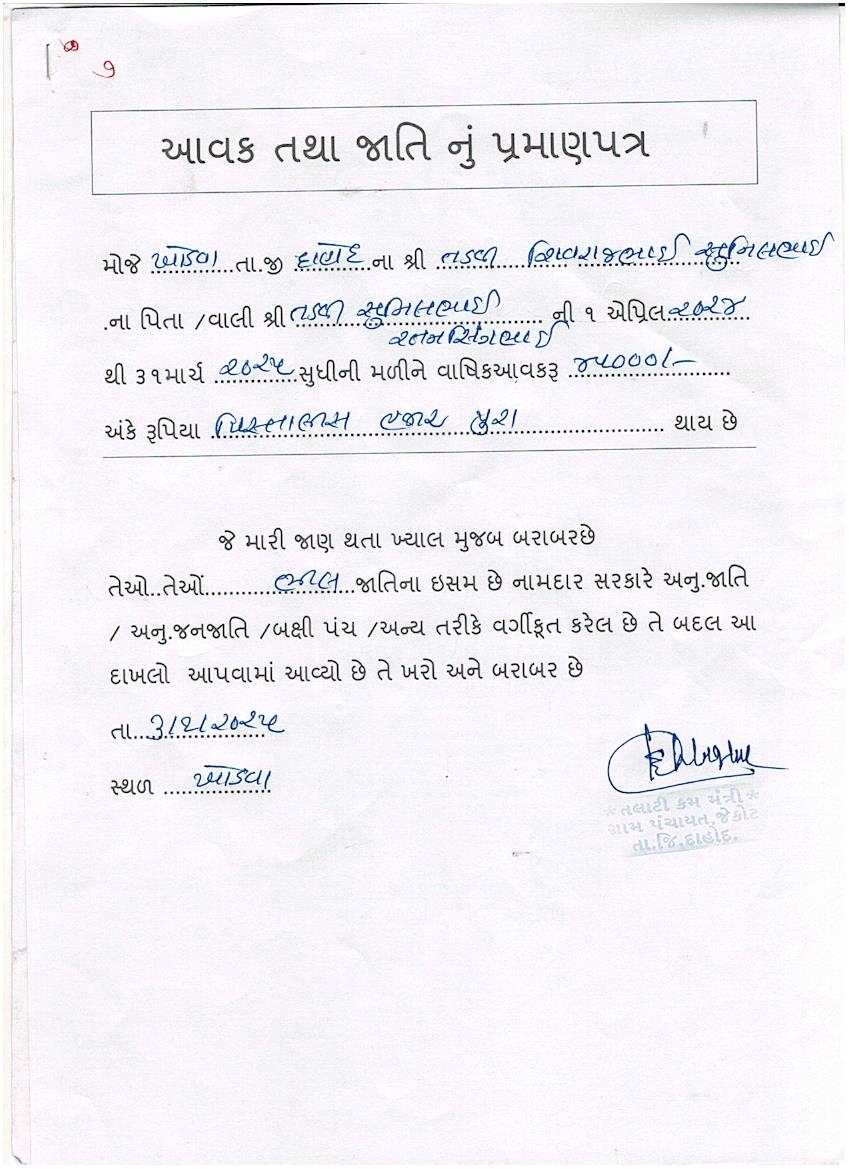 ૭
આવક તથા જાતિ નું પ્રમાણપત્ર
મોજે ખોડવા તા.જી દાહોદ ના શ્રી તડવી શિવરાજભાઈ સુનિલભાઈ
.ના પિતા /વાલી શ્રી તડવી સુનિલભાઈ ની ૧ એપ્રિલ ૨૦૨૪
રતનસિંગભાઈ
થી ૩૧માર્ચ ૨૦૨૫ સુધીની મળીને વાષિકઆવકરૂ ૪૫૦૦૦/-
અંકે રૂપિયા પિસ્તાલીસ હજાર પુરા થાય છે
જે મારી જાણ થતા ખ્યાલ મુજબ બરાબરછે
તેઓ..તેઓં ભીલ જાતિના ઇસમ છે નામદાર સરકારે અનુ.જાતિ
/ અનુ.જનજાતિ /બક્ષી પંચ /અન્ય તરીકે વર્ગીકૃત કરેલ છે તે બદલ આ
દાખલો આપવામાં આવ્યો છે તે ખરો અને બરાબર છે
તા...
સ્થળ ખોડવા
*તલાટી કમ મંત્રી*
ગ્રામ પંચાયત,જેકોટ
તા.જિ.દાહોદ.